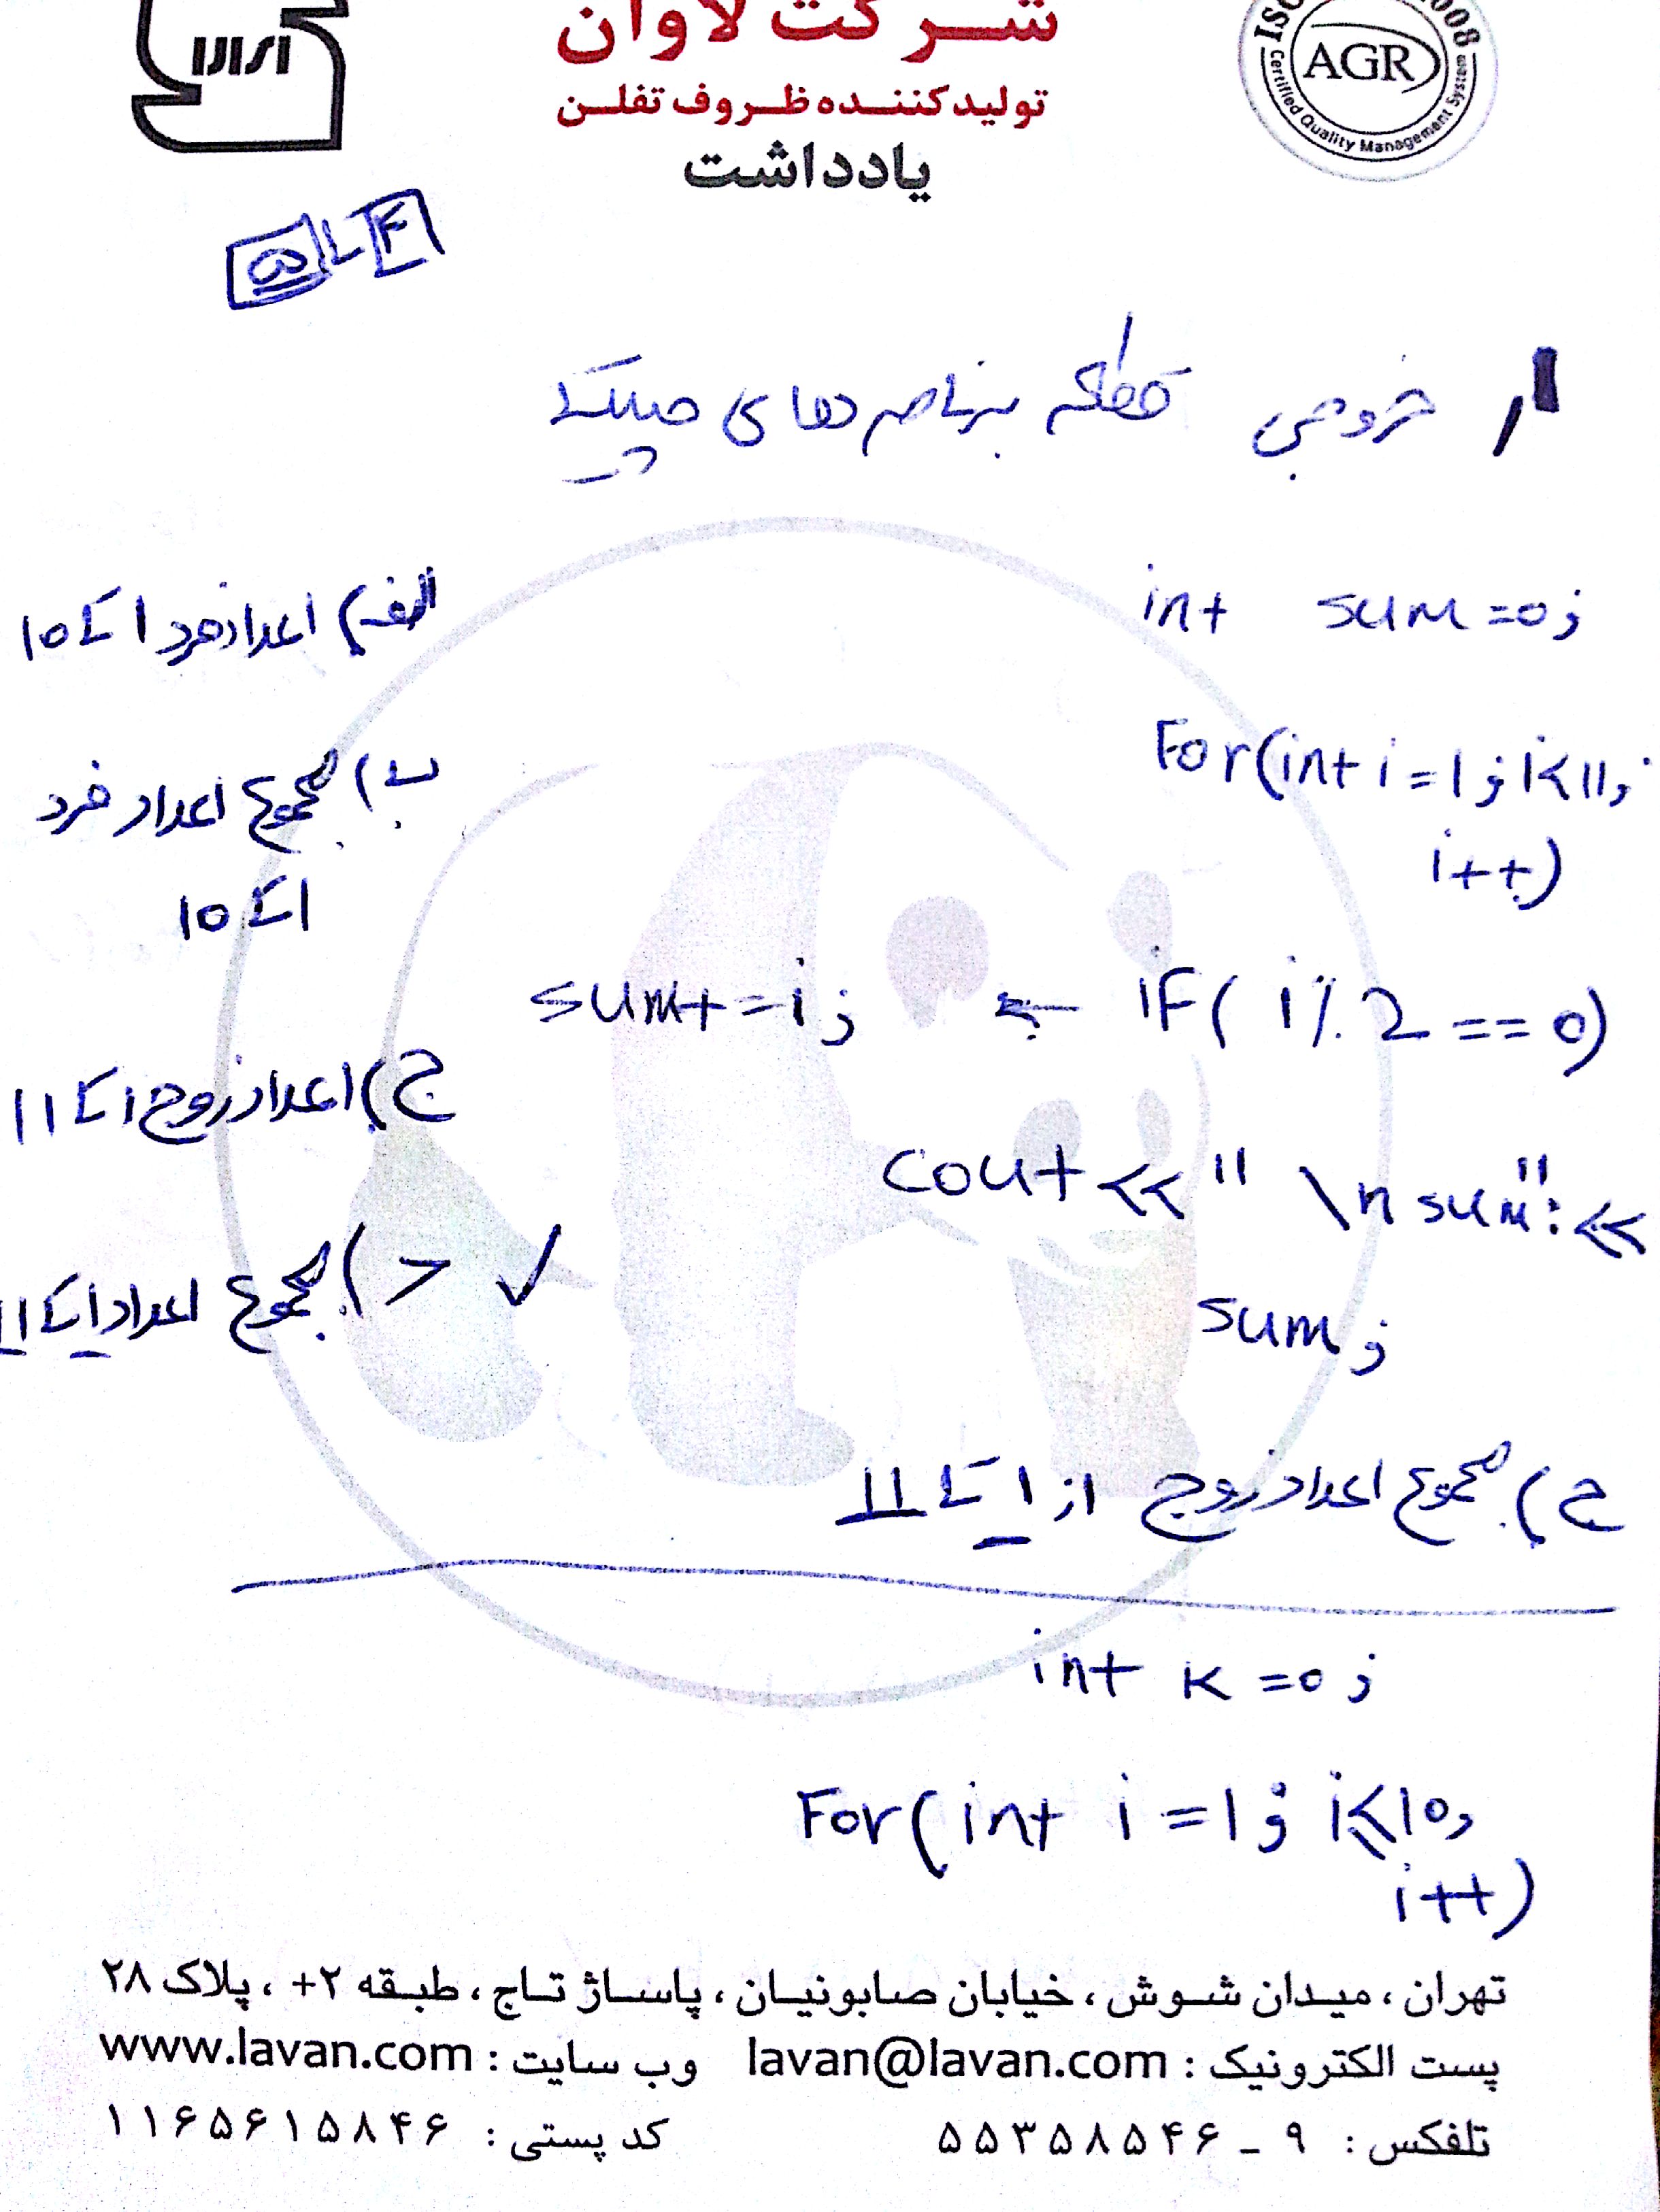 شرکت لاوان
تولیدکننده ظروف تفلن
یادداشت
AGR
Certified Quality Management System
۱ر خروجی قطعه برنامه‌های
int sum=0;
الف) اعداد فرد 1 تا 10
For(int i=1; i<11;
i++)
ب) مجموع اعداد فرد
1 تا 10
if( i%2==0) sum+=i;
ج) اعداد زوج 1 تا 11
cout<<"\nsum:"<<
sum;
د) مجموع اعداد 1 تا 11 ✓
ج) مجموع اعداد زوج از 1 تا 11
int k=0;
For(int i=1; i<=10;
i++)
تهران، میدان شوش، خیابان صابونیان، پاساژ تاج، طبقه ۲+، پلاک ۲۸
پست الکترونیک : lavan@lavan.com وب سایت : www.lavan.com
تلفکس : ۹ - ۵۵۳۵۸۵۴۶ کد پستی : ۱۱۶۵۶۱۵۸۴۶